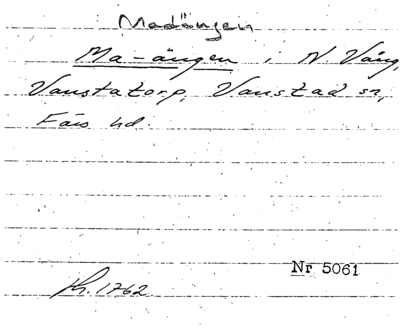 Madängen
Ma-ängen i N. Vång,
Vanstatorp, Vanstad sn,
Färs hd.
Nr 5061
Ph. 1762